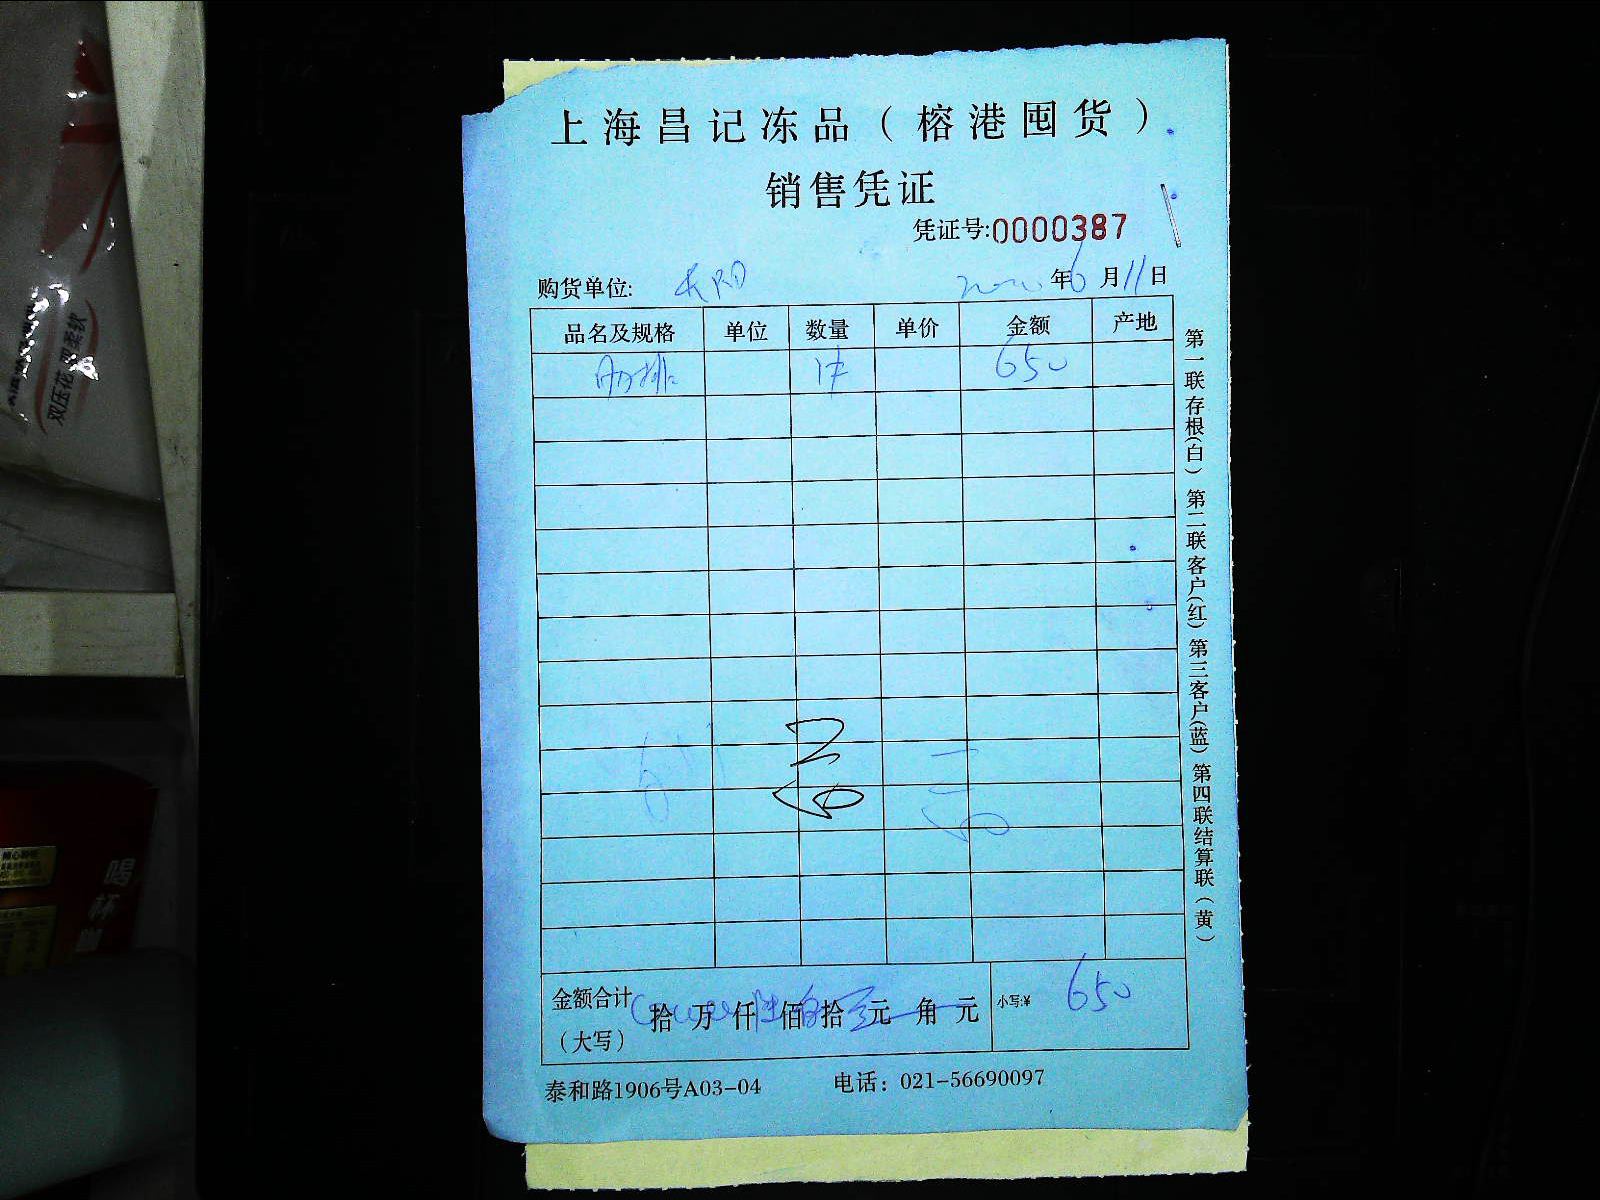 上海昌记冻品（榕港囤货）
销售凭证
凭证号:0000387
购货单位:
年6月11日
品名及规格 单位 数量 单价 金额 产地
肋排 1件 650
金额合计
（大写）
拾 万 仟 佰 拾 元 角 元
小写:¥ 650
泰和路1906号A03-04 电话：021-56690097
第一联存根(白) 第二联客户(红) 第三客户(蓝) 第四联结算联(黄)
双压花 柔软
喝杯